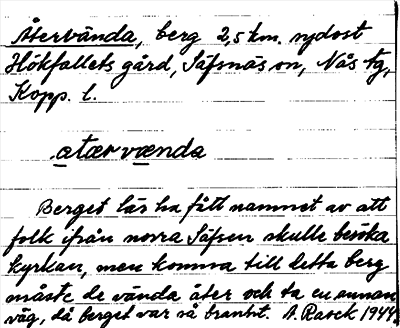 Återvända, berg 2,5 km. sydost
Hökfallets gård, Säfsnäs sn, Nås tg,
Kopp. l.
atærvænda
Berget läs ha fått namnet av att
folk ifrån norra Säfsen skulle besöka
kyrkan, men komma till detta berg
måste de vända åter och ta en annan
väg, då berget var så brant. A. Rasck 1944.